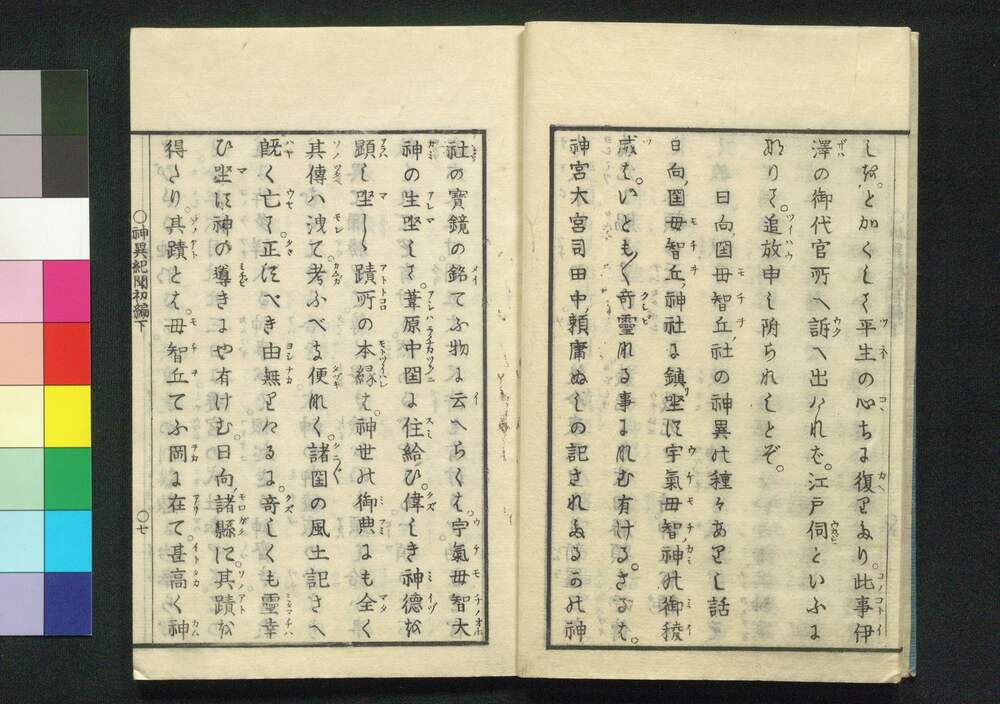 しを。とかくしてく平生の心ちに復りたり。此事伊
澤の御代官所へ訴へ出けれを。江戸伺といふに
なりて。追放申し附られしとぞ。
日向國毋智丘社の神異の種々ありし話
日向國毋智丘神社に鎮坐す宇氣毋智神の御稜
威は。いとも〳〵奇靈なる事になむ有ける。さるは。
神宮大宮司田中頼庸ぬしの記されたるかの神
社の寶鏡の銘てふ物に云へらくは。宇氣毋智大
神の生坐して。葦原中国に住給ひ。偉しき神德を
顕し坐しゝ蹟所の本縁は。神世の御典にも全く
其傳は洩て。考ふべき便なく。諸国の風土記さへ
既く亡て。正すべき由無りけるに。奇しくも靈幸
ひ坐す神の導きにや有けむ。日向諸縣に。其蹟を
得たり。其蹟とは。毋智丘てふ岡に在て。甚高く神
〇神異紀聞初編下
〇七